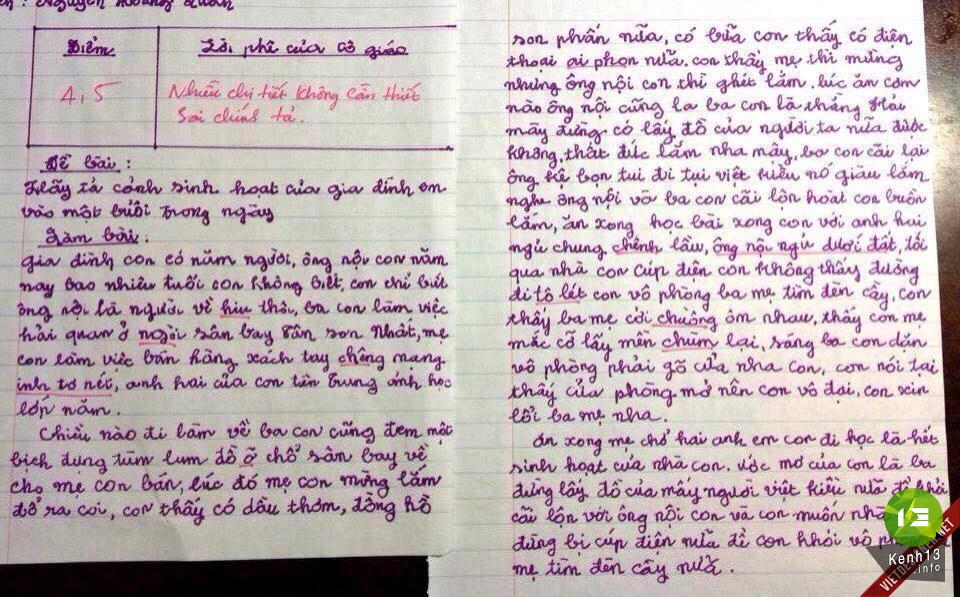 Nguyễn Hoàng Quân
Điểm
Lời phê của cô giáo
4,5
Nhiều chi tiết không cần thiết
Sai chính tả.
Đề bài :
Hãy tả cảnh sinh hoạt của gia đình em
vào một buổi trong ngày
Làm bài :
gia đình con có năm người, ông nội con năm
nay bao nhiêu tuổi con không biết, con chỉ biết
ông nội là người về hiu thôi, ba con làm việc
hải quan ở ngòi sân bay Tân sơn Nhất, mẹ
con làm việc bán hàng xách tay chêng mạng
inh tơ nét, anh hai của con tên Trung ảnh học
lớp năm.
Chiều nào đi làm về ba con cũng đem một
bịch đựng tùm lum đồ ở chổ sân bay về
cho mẹ con bán, lúc đó mẹ con mừng lắm
đổ ra coi, con thấy có dầu thơm, đồng hồ
son phấn nữa, có bữa con thấy có điện
thoại ai phon nữa, con thấy mẹ thì mừng
nhưng ông nội con thì ghét lắm. lúc ăn cơm
nào ông nội cũng la ba con là thằng Hải
mày đừng có lấy đồ của người ta nữa được
không, thất đức lắm nha mậy, ba con cãi lại
ông kệ bọn tui đi tụi việt kiều nó giàu lắm
nghe ông nội và ba con cãi lộn hoài con buồn
lắm, ăn xong học bài xong con với anh hai
ngủ chung chênh lầu, ông nội ngủ dưới đất, tối
qua nhà con cúp điện con không thấy đường
đi tô lét con vô phòng ba mẹ tìm đèn cầy, con
thấy ba mẹ cởi chuồng ôm nhau, thấy con mẹ
mắc cỡ lấy mền chùm lại, sáng ba con dặn
vô phòng phải gõ cửa nha con, con nói tại
thấy cửa phòng mở nên con vô đại, con xin
lỗi ba mẹ nha.
Ăn xong mẹ chở hai anh em con đi học là hết
sinh hoạt của nhà con. Ước mơ của con là ba
đừng lấy đồ của mấy người việt kiều nữa để khỏi
cãi lộn với ông nội con và con muốn nhà
đừng bị cúp điện nữa để con khỏi vô
mẹ tìm đèn cầy nữa.
Kenh13
.info